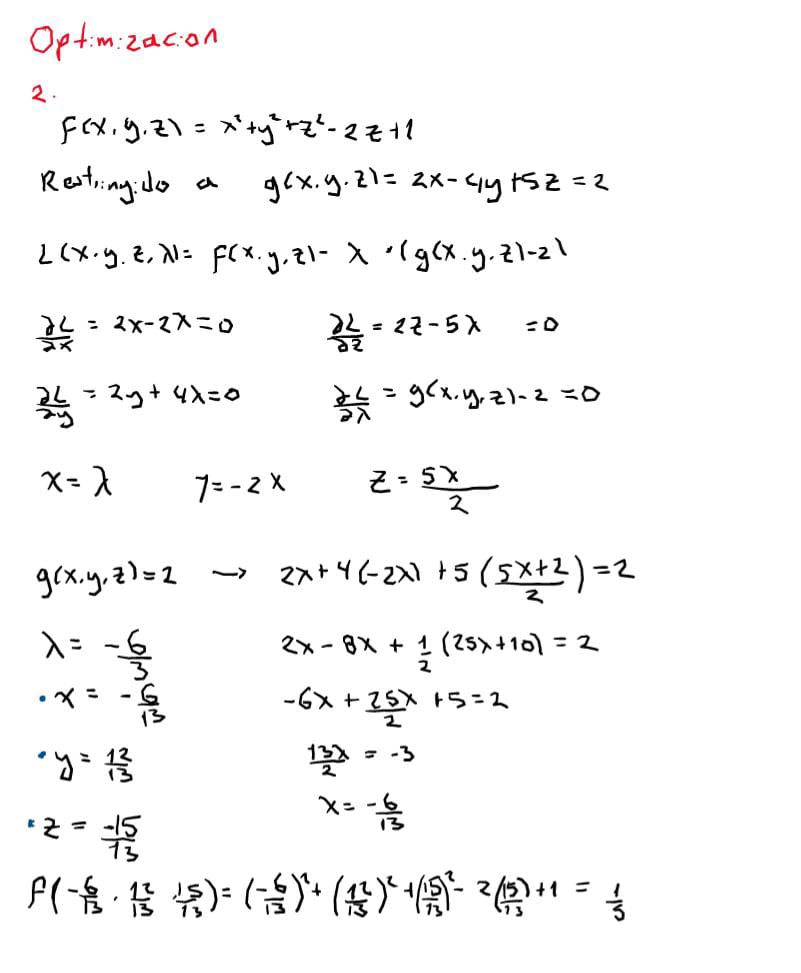 Optimizacion
2.
F(x, y, z) = x² + y² + z² - 2z + 1
Restringido a g(x, y, z) = 2x - 4y + 5z = 2
L(x, y, z, λ) = F(x, y, z) - λ · (g(x, y, z) - 2)
∂L/∂x = 2x - 2λ = 0 ∂L/∂z = 2z - 5λ = 0
∂L/∂y = 2y + 4λ = 0 ∂L/∂λ = g(x, y, z) - 2 = 0
x = λ 7 = -2x z = 5x/2
g(x, y, z) = 2 → 2x + 4(-2x) + 5((5x+2)/2) = 2
λ = -6/3 2x - 8x + 1/2 (25x + 10) = 2
• x = -6/13 -6x + 25x/2 + 5 = 2
• y = 12/13 13x/2 = -3
x = -6/13
• z = -15/13
F(-6/13, 12/13, 15/13) = (-6/13)² + (12/13)² + (15/13)² - 2(15/13) + 1 = 1/5